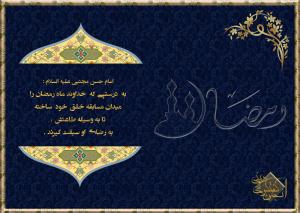 امام حسن مجتبی علیه السلام :
به درستی که خداوند ماه رمضان را
میدان مسابقه خلق خود ساخته
تا به وسیله طاعتش ،
به رضای او سبقت گیرند .
رمضان